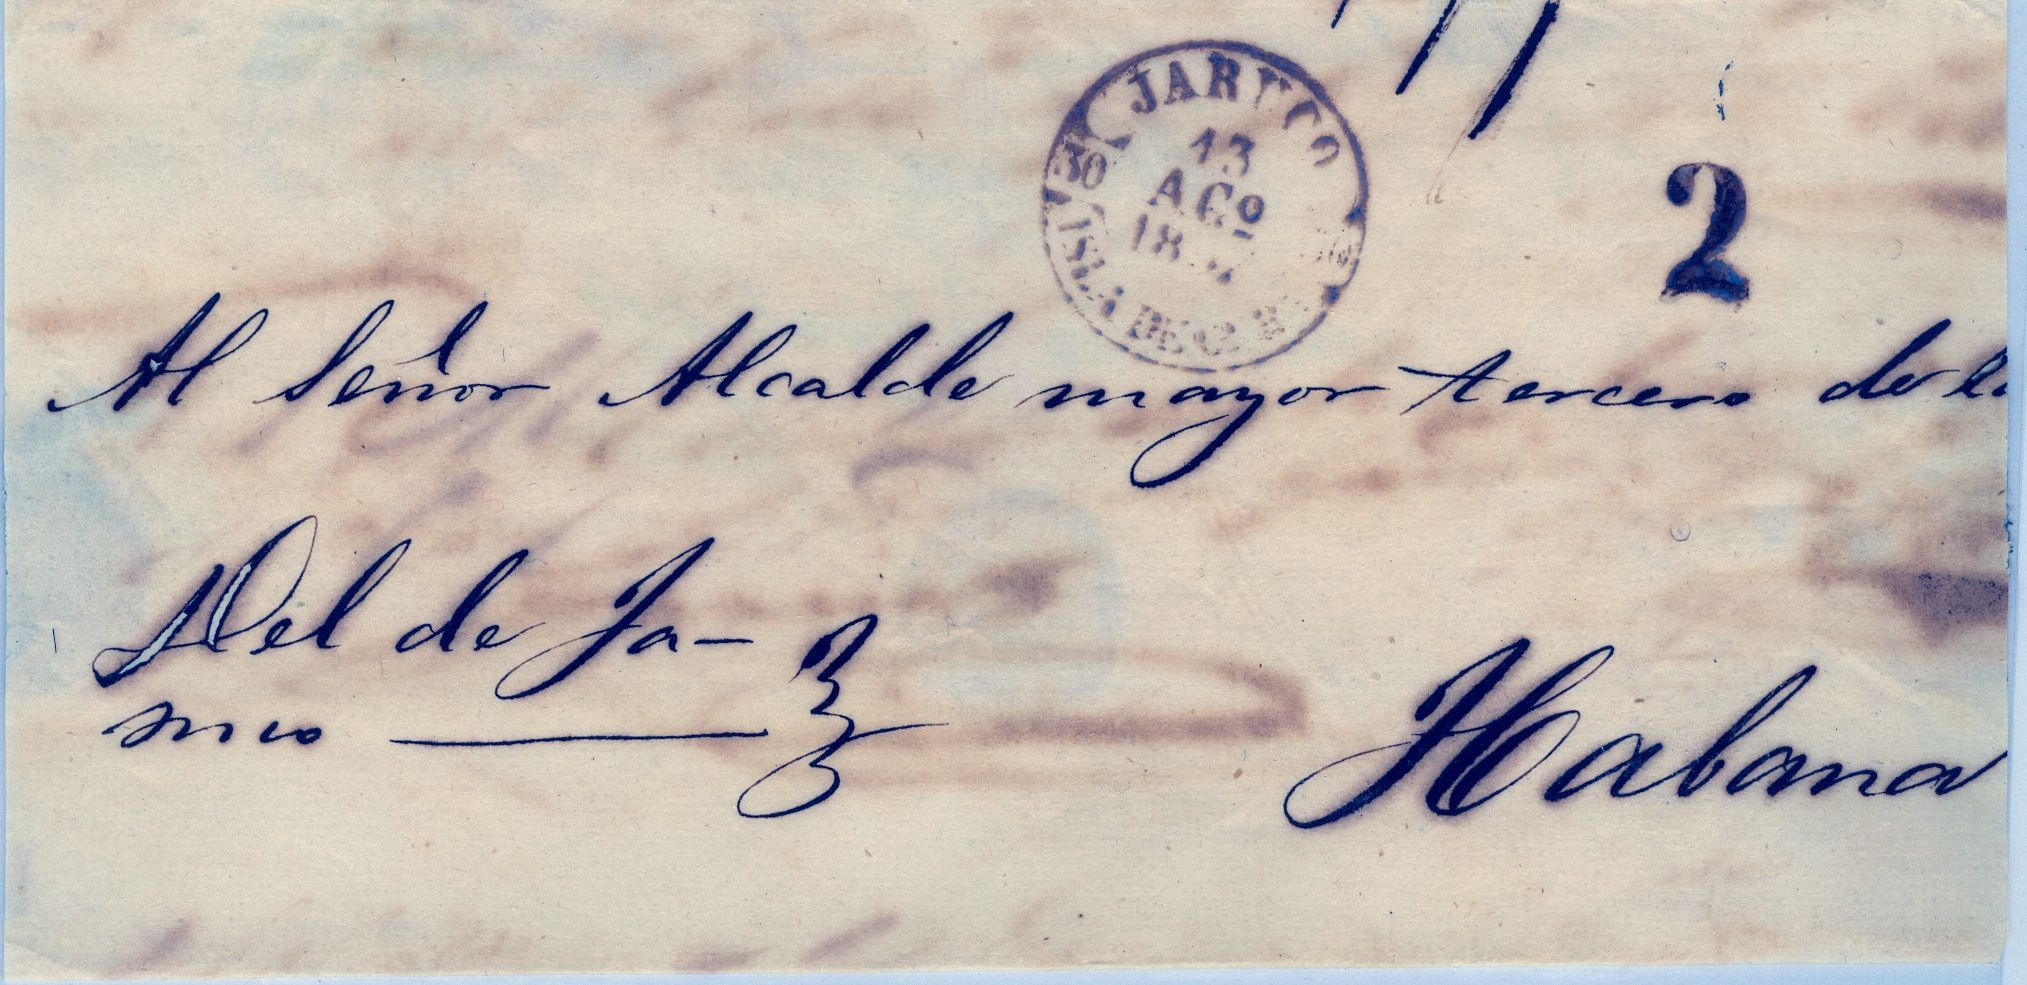 JARUCO
30
13
AGO
18
ISLA DE CUBA
2
Al Señor Alcalde mayor tercero de la
Del de Ja-
ruco
Habana